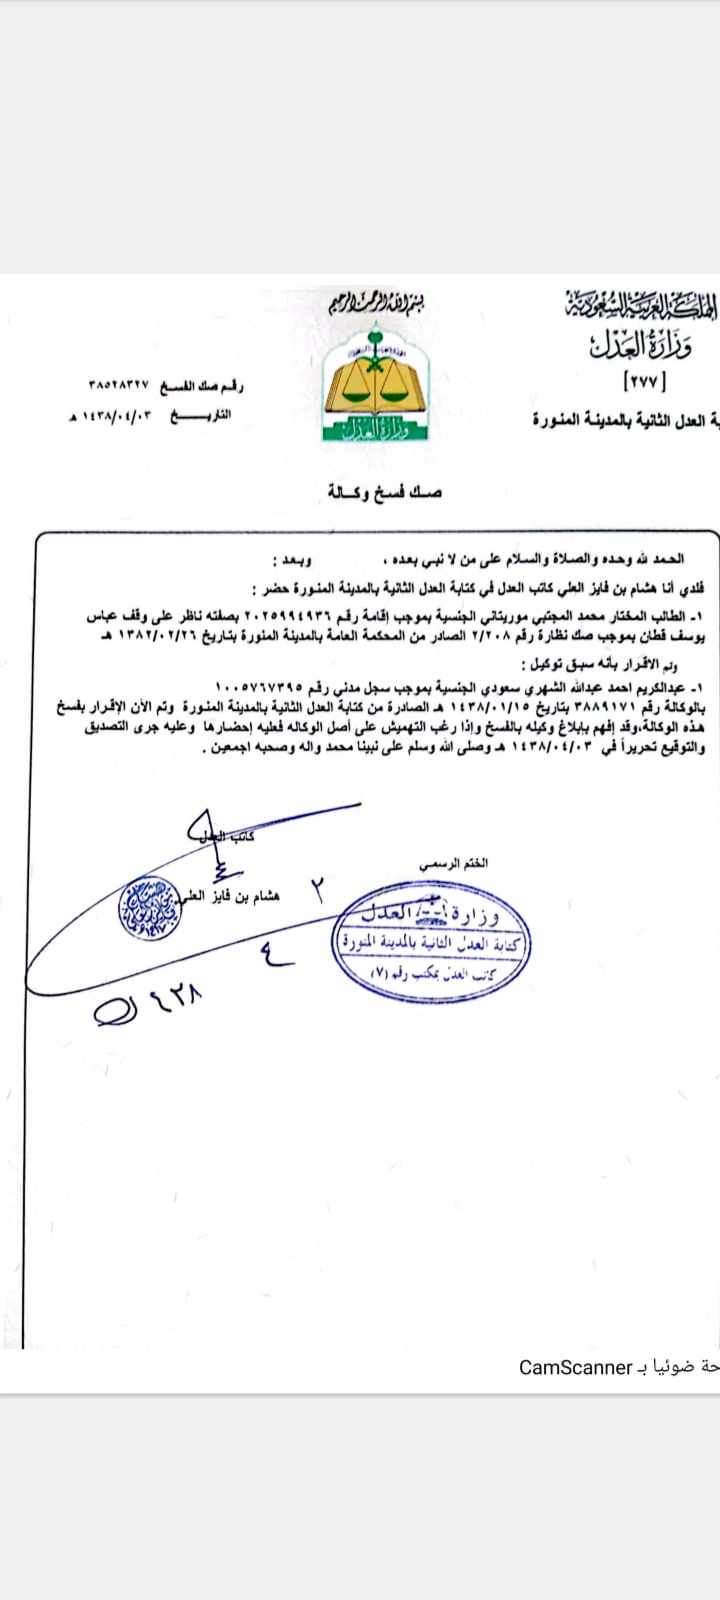 بسم الله الرحمن الرحيم
المملكة العربية السعودية
وزارة العدل
[٢٧٧]
ة العدل الثانية بالمدينة المنورة
وزارة العدل
رقم صك الفسخ ٣٨٥٢٨٣٢٧
التاريخ ١٤٣٨/٠٤/٠٣ هـ
صك فسخ وكالة
الحمد لله وحده والصلاة والسلام على من لا نبي بعده ، وبعد :
فلدي أنا هشام بن فايز العلي كاتب العدل في كتابة العدل الثانية بالمدينة المنورة حضر :
١- الطالب المختار محمد المجتبي موريتاني الجنسية بموجب إقامة رقم ٢٠٢٥٩٩٤٩٣٦ بصفته ناظر على وقف عباس
يوسف قطان بموجب صك نظارة رقم ٢/٢٠٨ الصادر من المحكمة العامة بالمدينة المنورة بتاريخ ١٣٨٢/٠٢/٢٦ هـ
وتم الاقرار بأنه سبق توكيل :
١- عبدالكريم احمد عبدالله الشهري سعودي الجنسية بموجب سجل مدني رقم ١٠٠٥٧٦٧٣٩٥
بالوكالة رقم ٣٨٨٩١٧١ بتاريخ ١٤٣٨/٠١/١٥ هـ الصادرة من كتابة العدل الثانية بالمدينة المنورة وتم الأن الإقرار بفسخ
هذه الوكالة،وقد إفهم بإبلاغ وكيله بالفسخ وإذا رغب التهميش على أصل الوكاله فعليه إحضارها وعليه جرى التصديق
والتوقيع تحريراً في ١٤٣٨/٠٤/٠٣ هـ وصلى الله وسلم على نبينا محمد واله وصحبه اجمعين .
كاتب العدل
هشام بن فايز العلي
الختم الرسمي
وزارة العدل
كتابة العدل الثانية بالمدينة المنورة
كاتب العدل بمكتب رقم (٧)
٣
٤
٤٣٨
حة ضوئيا بـ CamScanner